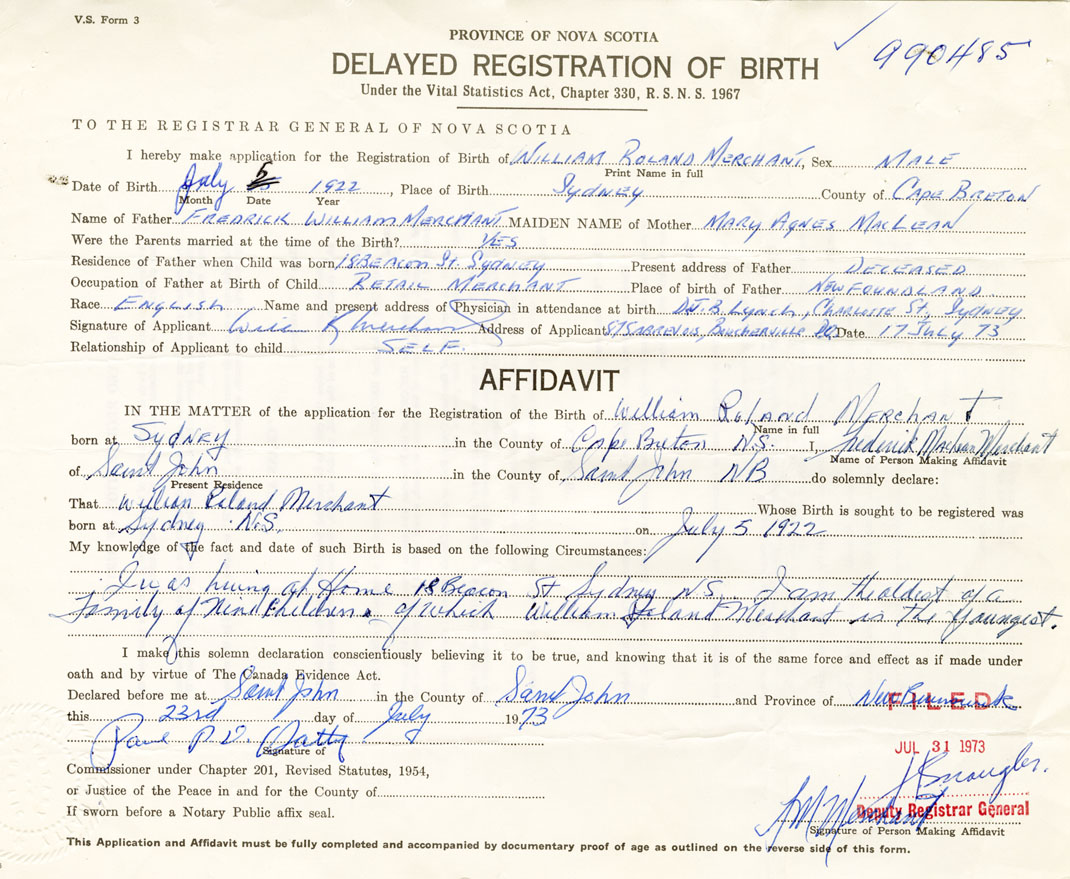 V.S. Form 3
990485
PROVINCE OF NOVA SCOTIA
DELAYED REGISTRATION OF BIRTH
Under the Vital Statistics Act, Chapter 330, R.S.N.S. 1967
TO THE REGISTRAR GENERAL OF NOVA SCOTIA
I hereby make application for the Registration of Birth of WILLIAM ROLAND MERCHANT, Sex MALE
Print Name in full
Date of Birth July 5 1922, Place of Birth Sydney County of CAPE BRETON
Month Date Year
Name of Father FREDRICK WILLIAM MERCHANT MAIDEN NAME of Mother MARY AGNES MACLEAN
Were the Parents married at the time of the Birth? YES
Residence of Father when Child was born 18 BEACON St. SYDNEY Present address of Father DECEASED
Occupation of Father at Birth of Child RETAIL MERCHANT Place of birth of Father NEWFOUNDLAND
Race ENGLISH Name and present address of Physician in attendance at birth B. Lynch, CHARLOTTE ST., SYDNEY
Signature of Applicant Will R Merchant Address of Applicant BOUCHERVILLE PQ Date 17 July 73
Relationship of Applicant to child SELF.
AFFIDAVIT
IN THE MATTER of the application for the Registration of the Birth of William Roland MERCHANT
Name in full
born at Sydney in the County of Cape Breton N.S. I, Frederick MacLean Merchant
Name of Person Making Affidavit
of Saint John in the County of Saint John NB do solemnly declare:
Present Residence
That William Roland Merchant Whose Birth is sought to be registered was
born at Sydney N.S. on July 5 1922
My knowledge of the fact and date of such Birth is based on the following Circumstances:
I was living at Home 18 Beacon St Sydney N.S. I am the oldest of a
Family of Nine Children of which William Roland Merchant is the Youngest.
I make this solemn declaration conscientiously believing it to be true, and knowing that it is of the same force and effect as if made under
oath and by virtue of The Canada Evidence Act.
Declared before me at Saint John in the County of Saint John and Province of New Brunswick
FILED
this 23rd day of July 1973
JUL 31 1973
Signature of
Commissioner under Chapter 201, Revised Statutes, 1954,
or Justice of the Peace in and for the County of
Deputy Registrar General
If sworn before a Notary Public affix seal.
Signature of Person Making Affidavit
This Application and Affidavit must be fully completed and accompanied by documentary proof of age as outlined on the reverse side of this form.